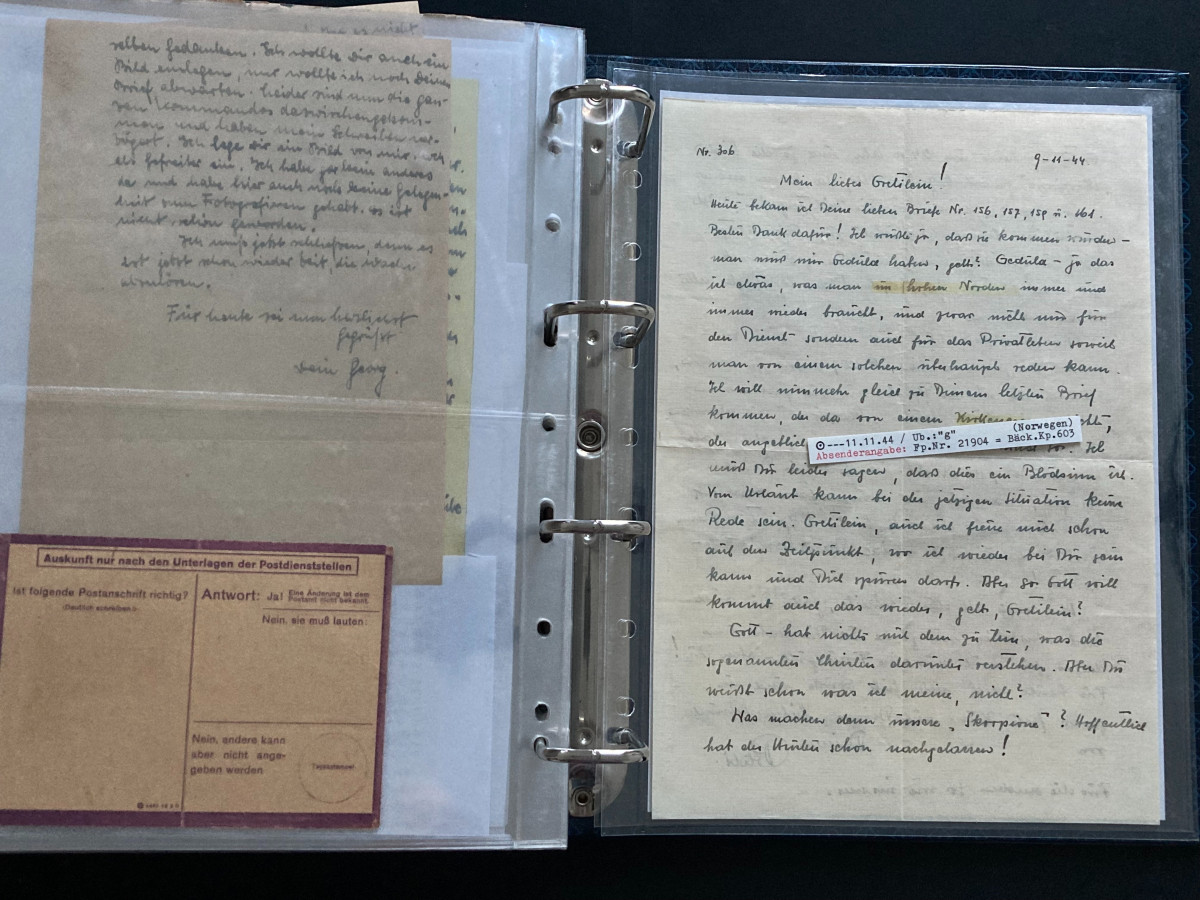 selben Gedanken. Ich wollte Dir auch ein
Bild einlegen, nur wollte ich noch Deinen
Brief abwarten. Leider sind nun die gan-
zen Kommandos dazwischengekom-
men und haben mein Schreiben ver-
zögert. Ich lege Dir ein Bild von mir, noch
als Gefreiter ein. Ich habe gar kein anderes
da und habe hier auch noch keine Gelegen-
heit zum Fotografieren gehabt. es ist
nicht schön geworden.
Ich muß jetzt schließen, denn es
ist jetzt schon wieder Zeit, die
Für heute sei nun herzlichst
gegrüßt
Dein Georg.
Auskunft nur nach den Unterlagen der Postdienststellen
Ist folgende Postanschrift richtig?
(Deutlich schreiben!)
Antwort: Ja! Eine Änderung ist dem Postamt nicht bekannt.
Nein, sie muß lauten:
Nein, andere kann
aber nicht ange-
geben werden
Tagesstempel
Nr. 306
9-11-44.
Mein liebes Gretilein!
Heute bekam ich Deine lieben Briefe Nr. 156, 157, 159 u. 161.
Besten Dank dafür! Ich wußte ja, daß sie kommen würden –
man muß nur Geduld haben, gelt? Geduld – ja das
ist etwas, was man im hohen Norden immer und
immer wieder braucht, und zwar nicht nur für
den Dienst sondern auch für das Privatleben soweit
man von einem solchen überhaupt reden kann.
Ich will nunmehr gleich zu Deinem letzten Brief
kommen, der da von einem
der angeblich
⊙---11.11.44 / Ub.:"g" (Norwegen)
Absenderangabe: Fp.Nr. 21904 = Bäck.Kp.603
Ich
muß Dir leider sagen, daß dies ein Blödsinn ist.
Von Urlaub kann bei der jetzigen Situation keine
Rede sein. Gretilein, auch ich freue mich schon
auf den Zeitpunkt, wo ich wieder bei Dir sein
kann und Dich spüren darf. Aber so Gott will
kommt auch das wieder, gelt, Gretilein?
Gott – hat nichts mit dem zu tun, was die
sogenannten Christen darunter verstehen. Aber Du
weißt schon was ich meine, nicht?
Was machen denn unsere „Skorpione"? Hoffentlich
hat der Husten schon nachgelassen!